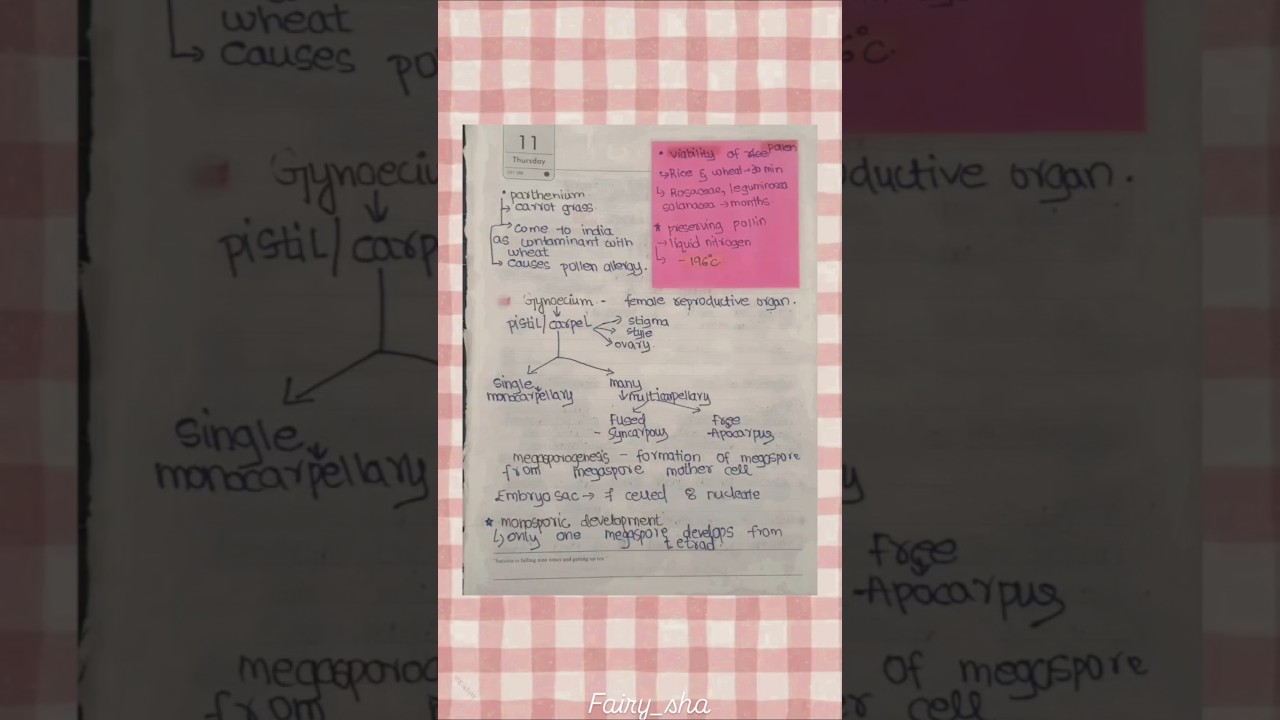 11
Thursday
• parthenium
↳ carrot grass.
→ come to india
as contaminant with
wheat
↳ causes pollen allergy.
• viability of pollen
↳ Rice & wheat → 30 min
↳ Rosaceae, leguminosa
solanacea → months.
* preserving pollin
→ liquid nitrogen
↳ - 196°C
Gynoecium - female reproductive organ.
pistil/carpel → stigma
→ style
→ ovary.
single many
monocarpellary multicarpellary
Fused free
- Syncarpous -Apocarpus
megasporogenesis - formation of megaspore
from megaspore mother cell
Embryo sac → 7 celled 8 nucleate
* monosporic development.
↳ only one megaspore develops from
tetrad.
Fairy_sha